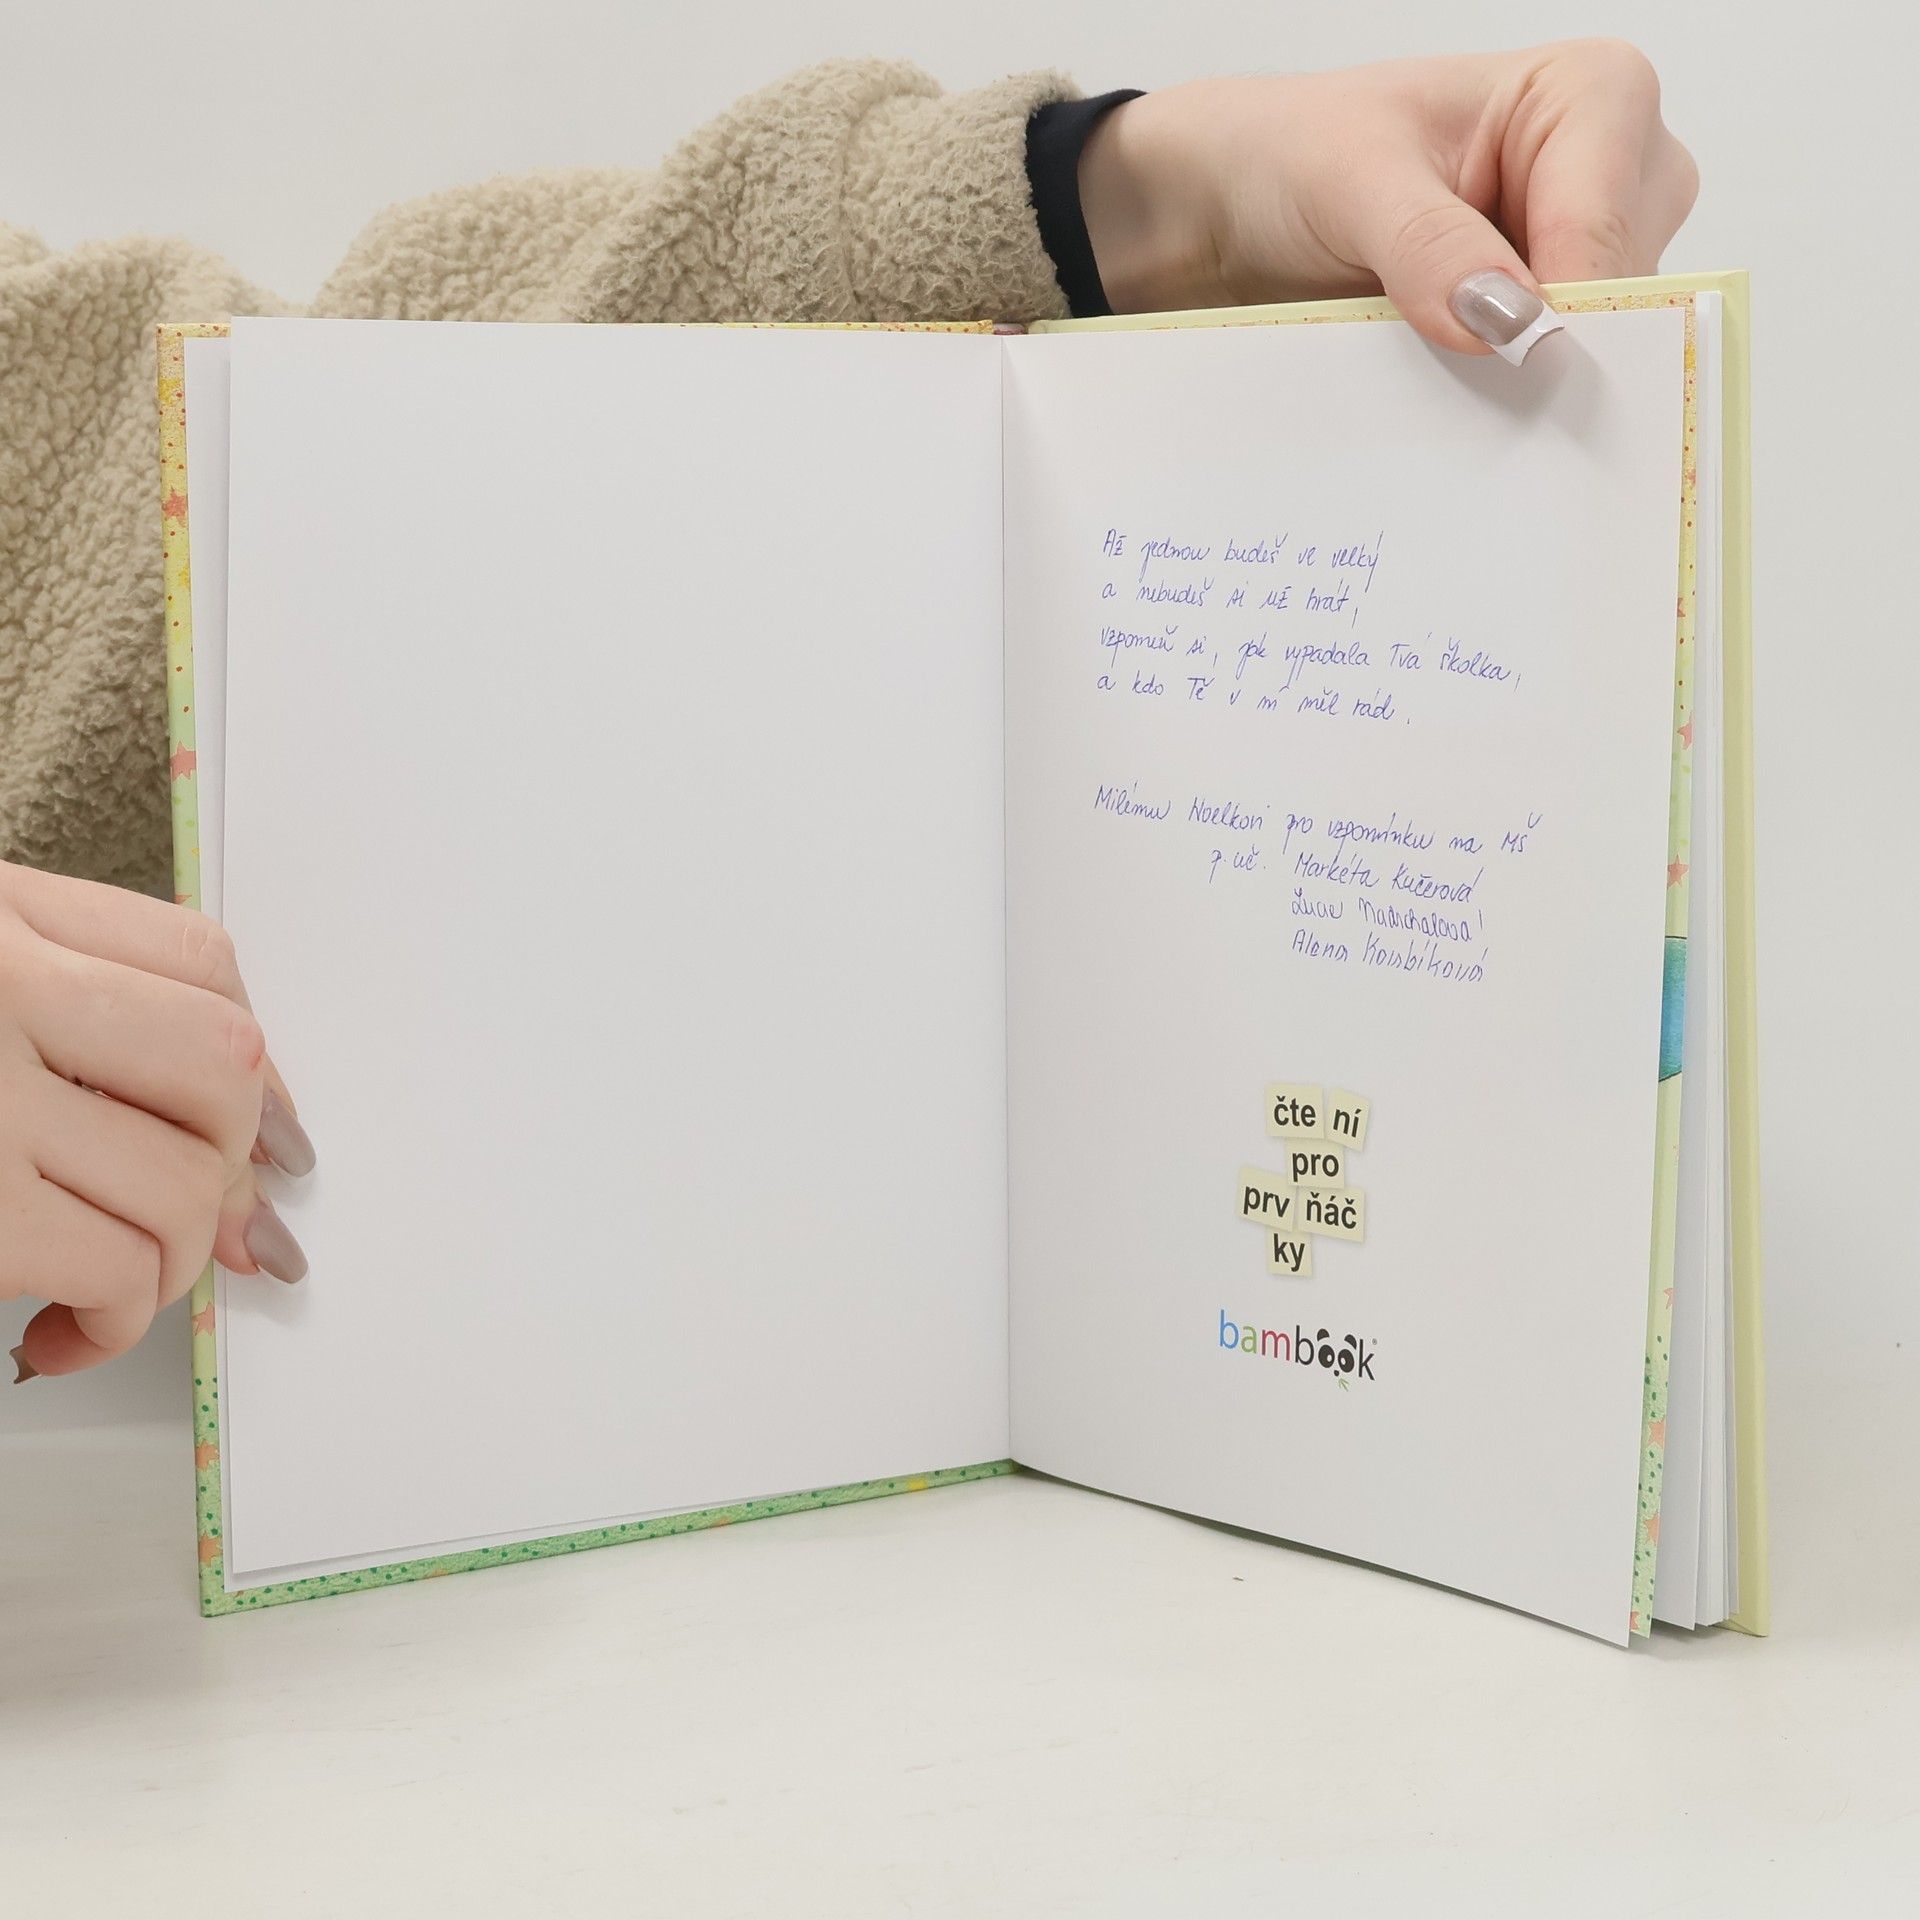 Až jednou budeš ve velký
a nebudeš si už hrát,
vzpomeň si, jak vypadala Tvá školka,
a kdo Tě v ní měl rád.
Milému Noelkovi pro vzpomínku na MŠ
p. uč. Markéta Kučerová
Lucie
Alena
čte ní
pro
prv ňáč
ky
bambook